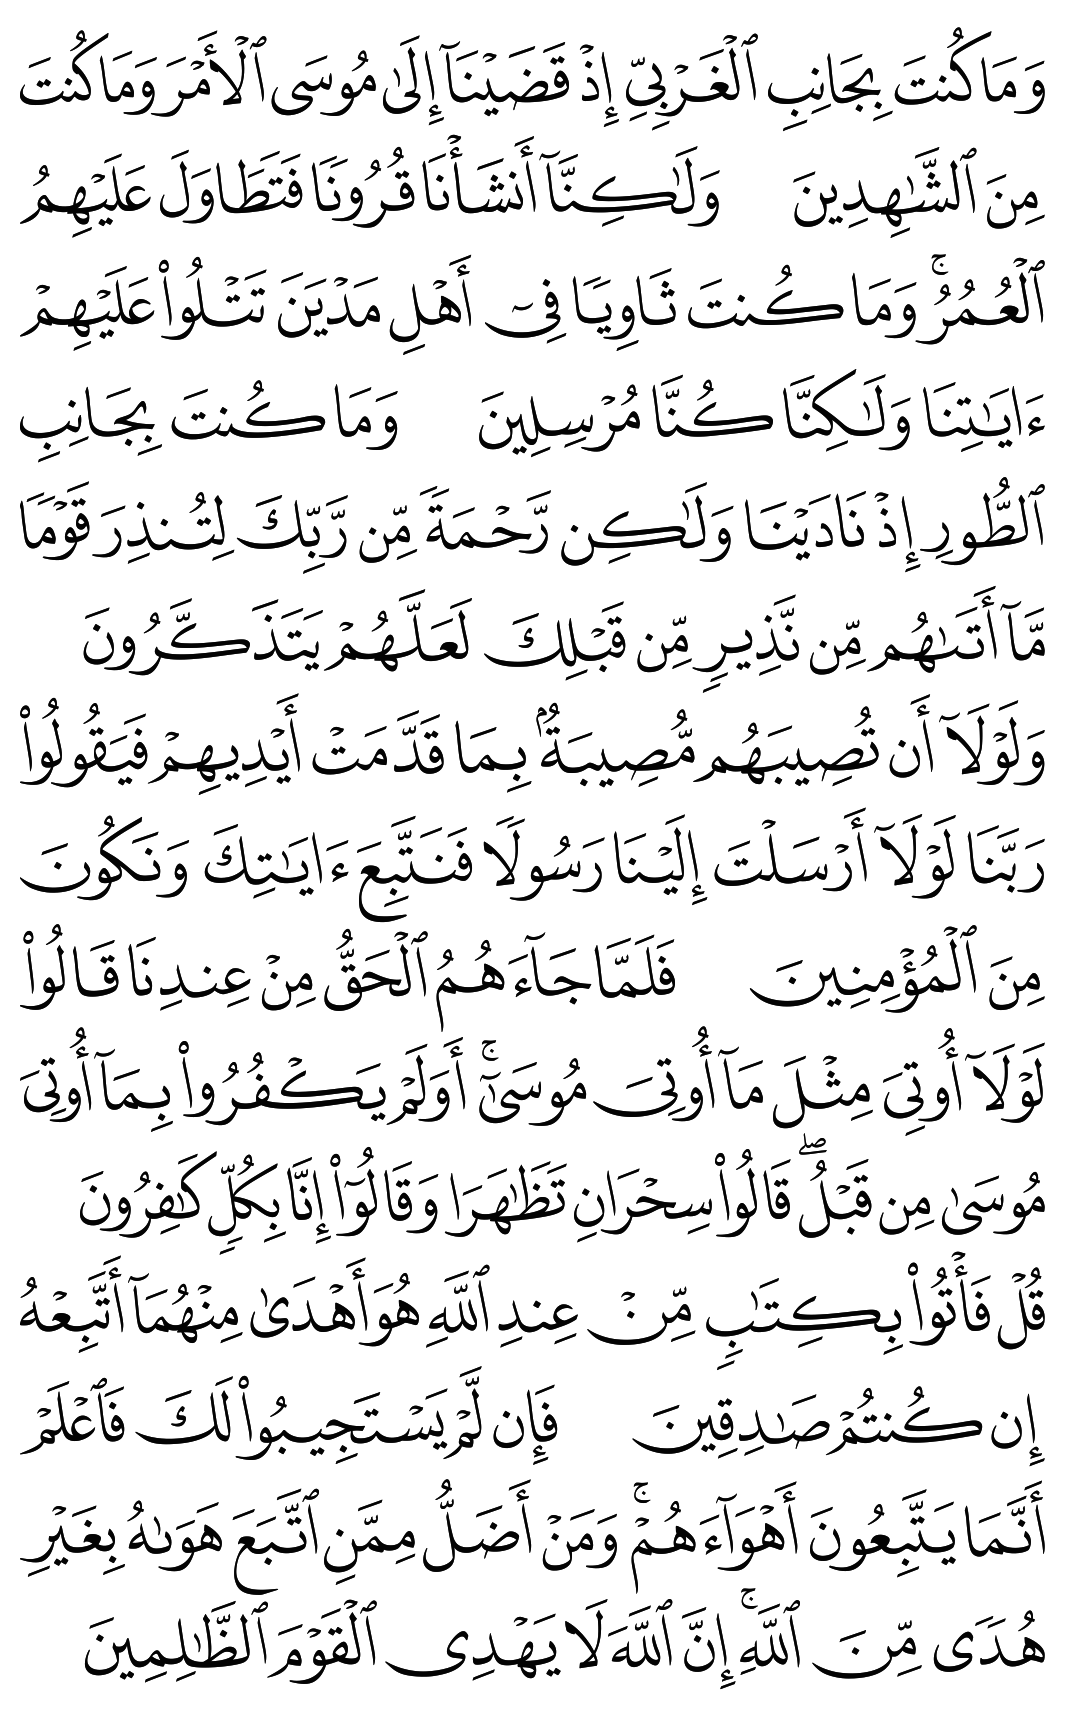 وَمَا كُنتَ بِجَانِبِ ٱلْغَرْبِىِّ إِذْ قَضَيْنَآ إِلَىٰ مُوسَى ٱلْأَمْرَ وَمَا كُنتَ
مِنَ ٱلشَّـٰهِدِينَ وَلَـٰكِنَّآ أَنشَأْنَا قُرُونًا فَتَطَاوَلَ عَلَيْهِمُ
ٱلْعُمُرُ ۚ وَمَا كُنتَ ثَاوِيًا فِىٓ أَهْلِ مَدْيَنَ تَتْلُوا۟ عَلَيْهِمْ
ءَايَـٰتِنَا وَلَـٰكِنَّا كُنَّا مُرْسِلِينَ وَمَا كُنتَ بِجَانِبِ
ٱلطُّورِ إِذْ نَادَيْنَا وَلَـٰكِن رَّحْمَةً مِّن رَّبِّكَ لِتُنذِرَ قَوْمًا
مَّآ أَتَىٰهُم مِّن نَّذِيرٍ مِّن قَبْلِكَ لَعَلَّهُمْ يَتَذَكَّرُونَ
وَلَوْلَآ أَن تُصِيبَهُم مُّصِيبَةٌۢ بِمَا قَدَّمَتْ أَيْدِيهِمْ فَيَقُولُوا۟
رَبَّنَا لَوْلَآ أَرْسَلْتَ إِلَيْنَا رَسُولًا فَنَتَّبِعَ ءَايَـٰتِكَ وَنَكُونَ
مِنَ ٱلْمُؤْمِنِينَ فَلَمَّا جَآءَهُمُ ٱلْحَقُّ مِنْ عِندِنَا قَالُوا۟
لَوْلَآ أُوتِىَ مِثْلَ مَآ أُوتِىَ مُوسَىٰٓ ۚ أَوَلَمْ يَكْفُرُوا۟ بِمَآ أُوتِىَ
مُوسَىٰ مِن قَبْلُ ۖ قَالُوا۟ سِحْرَانِ تَظَـٰهَرَا وَقَالُوٓا۟ إِنَّا بِكُلٍّ كَـٰفِرُونَ
قُلْ فَأْتُوا۟ بِكِتَـٰبٍ مِّنْ عِندِ ٱللَّهِ هُوَ أَهْدَىٰ مِنْهُمَآ أَتَّبِعْهُ
إِن كُنتُمْ صَـٰدِقِينَ فَإِن لَّمْ يَسْتَجِيبُوا۟ لَكَ فَٱعْلَمْ
أَنَّمَا يَتَّبِعُونَ أَهْوَآءَهُمْ ۚ وَمَنْ أَضَلُّ مِمَّنِ ٱتَّبَعَ هَوَىٰهُ بِغَيْرِ
هُدًى مِّنَ ٱللَّهِ ۚ إِنَّ ٱللَّهَ لَا يَهْدِى ٱلْقَوْمَ ٱلظَّـٰلِمِينَ